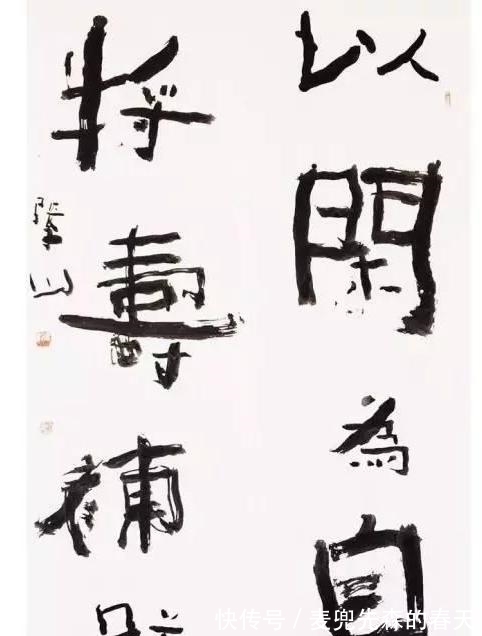 以閑為自
將壽補
快传号 / 麦兜先森的春天